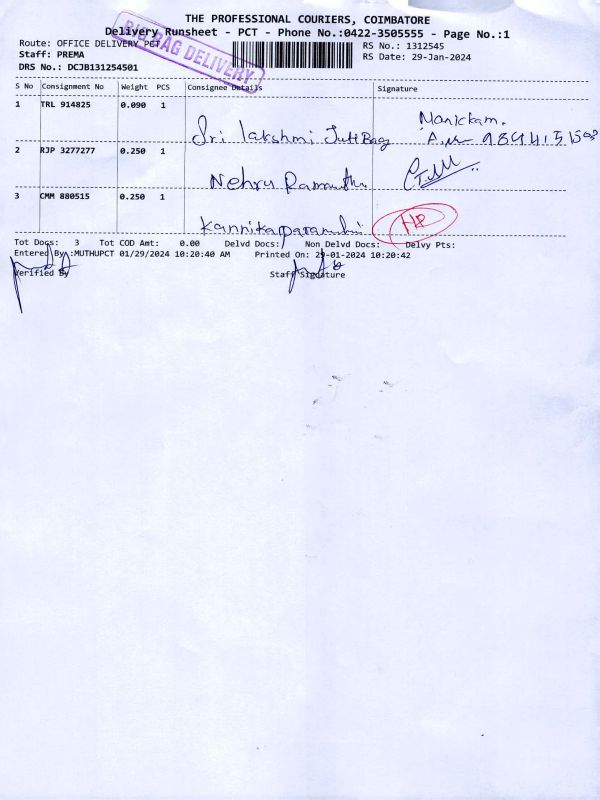 THE PROFESSIONAL COURIERS, COIMBATORE
Delivery Runsheet - PCT - Phone No.:0422-3505555 - Page No.:1
BIG BAG DELIVERY
Route: OFFICE DELIVERY PCT
RS No.: 1312545
Staff: PREMA
RS Date: 29-Jan-2024
DRS No.: DCJB131254501
S No Consignment No Weight PCS Consignee Details Signature
1 TRL 914825 0.090 1 Sri lakshmi Jute Bag Manickam.
2 RJP 3277277 0.250 1 Nehru
3 CMM 880515 0.250 1 HP
Tot Docs: 3 Tot COD Amt: 0.00 Delvd Docs: Non Delvd Docs: Delvy Pts:
Entered By :MUTHUPCT 01/29/2024 10:20:40 AM Printed On: 29-01-2024 10:20:42
Verified By Staff Signature